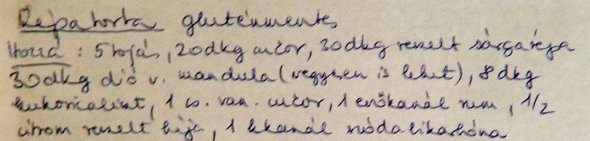 Répatorta gluténmentes
Hozzá : 5 tojás, 20dkg cukor, 30dkg reszelt sárgarépa
30dkg dió v. mandula (vegyesen is lehet), 8dkg
kukoricaliszt, 1 cs. van. cukor, 1 evőkanál rum, 1/2
citrom reszelt héja, 1 kkanál szódabikarbóna